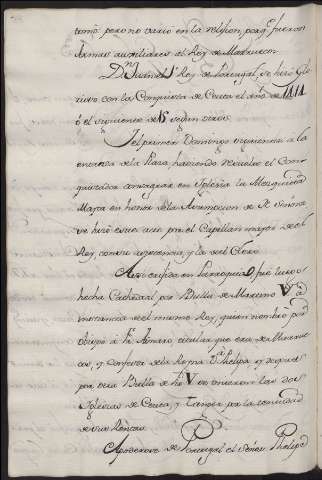 tomó pero no vario en la relixion, porq.e fueron
Armas auxiliares al Rey de Marruecos
D.n Juan el 1.º Rey de Portugal, se hizo Glo
rioso con la Conquista de Ceuta el año de 1414
ó el siguiente de 15 segun otros
el primer Domingo siguiente a la
entrada de la Plaza haviendo resuelto el Con
quistador consagrar en Iglesia la Mezquita
Maya en honor de la Asumpcion de N. Señora
se hizo este acto por el Capellan mayor del
Rey, con su asistencia, y la del Clero
fue luego
hecha Cathedral por Bulla de Martino V á
instancia del mismo Rey, quien nombró por
Obispo a fr. Aymaro titular que era de Marrue
cos, y confesor de la Reyna D.ª Phelipa y despues
por otra Bulla de V se unieron las dos
Iglesias de Ceuta, y Tanger por la tenuidad
de sus Rentas
Apoderose de Portugal el Señor Phelipe